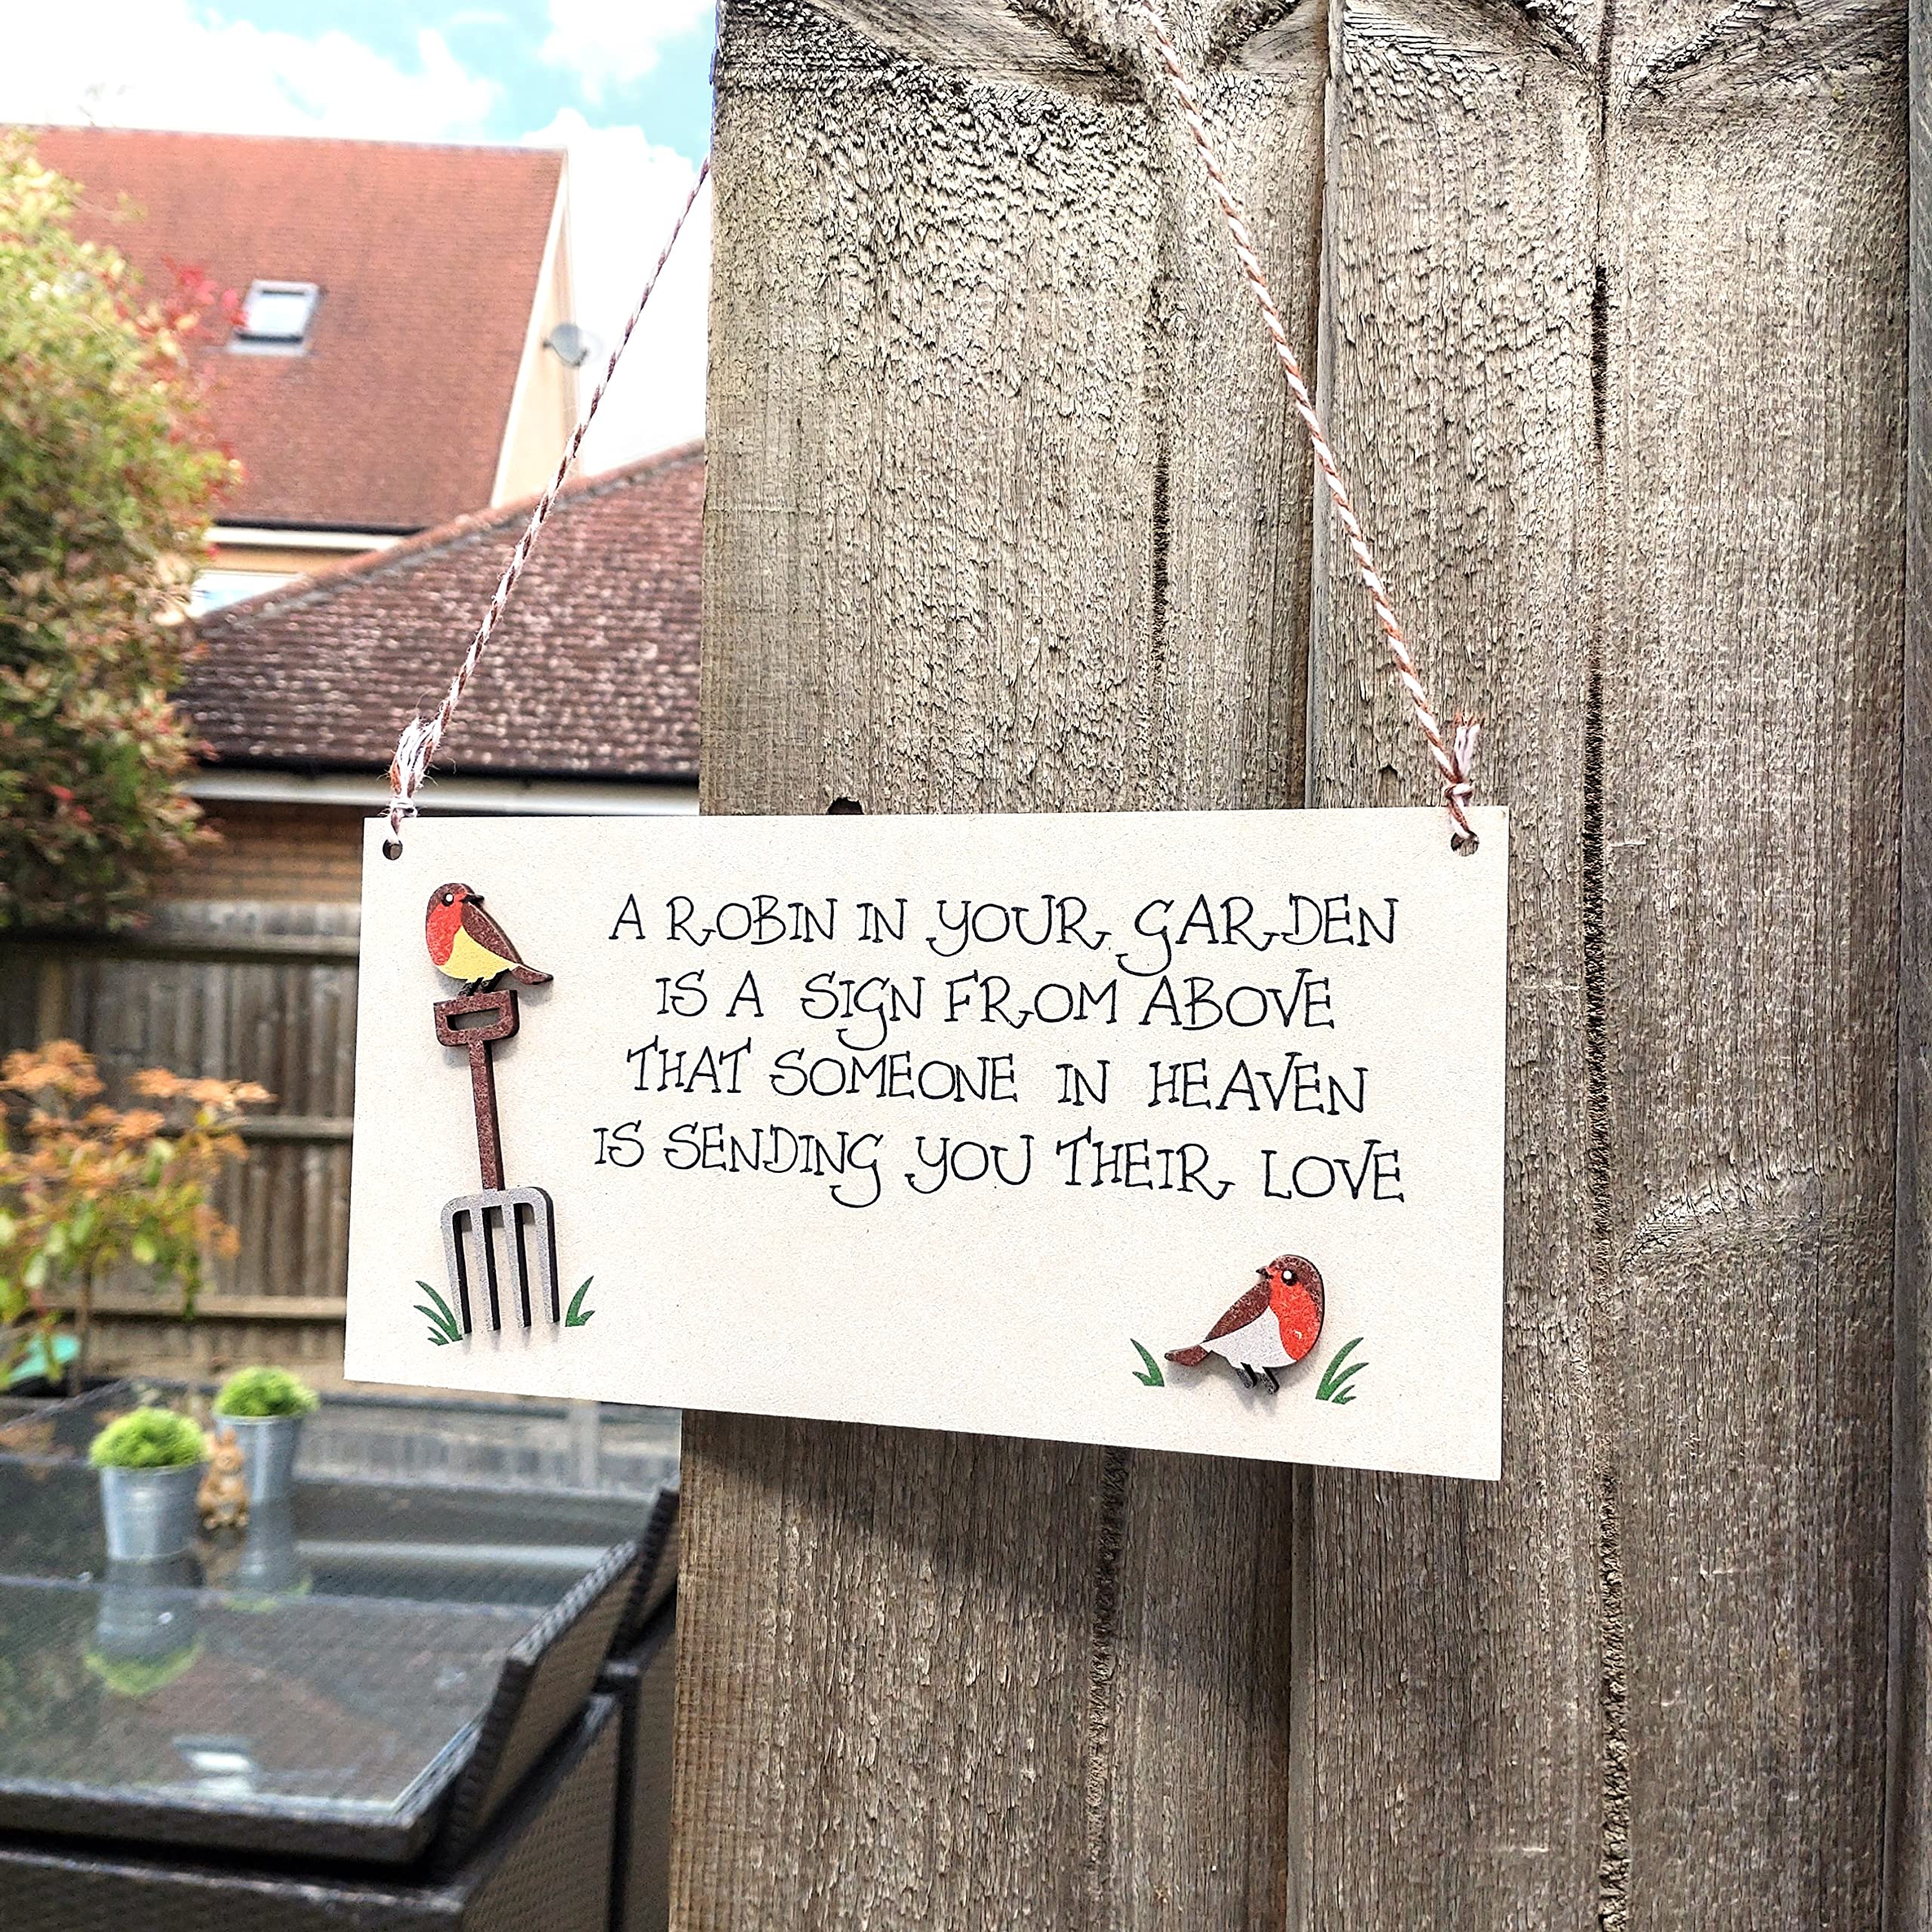 A ROBIN IN YOUR GARDEN
IS A SIGN FROM ABOVE
THAT SOMEONE IN HEAVEN
IS SENDING YOU THEIR LOVE